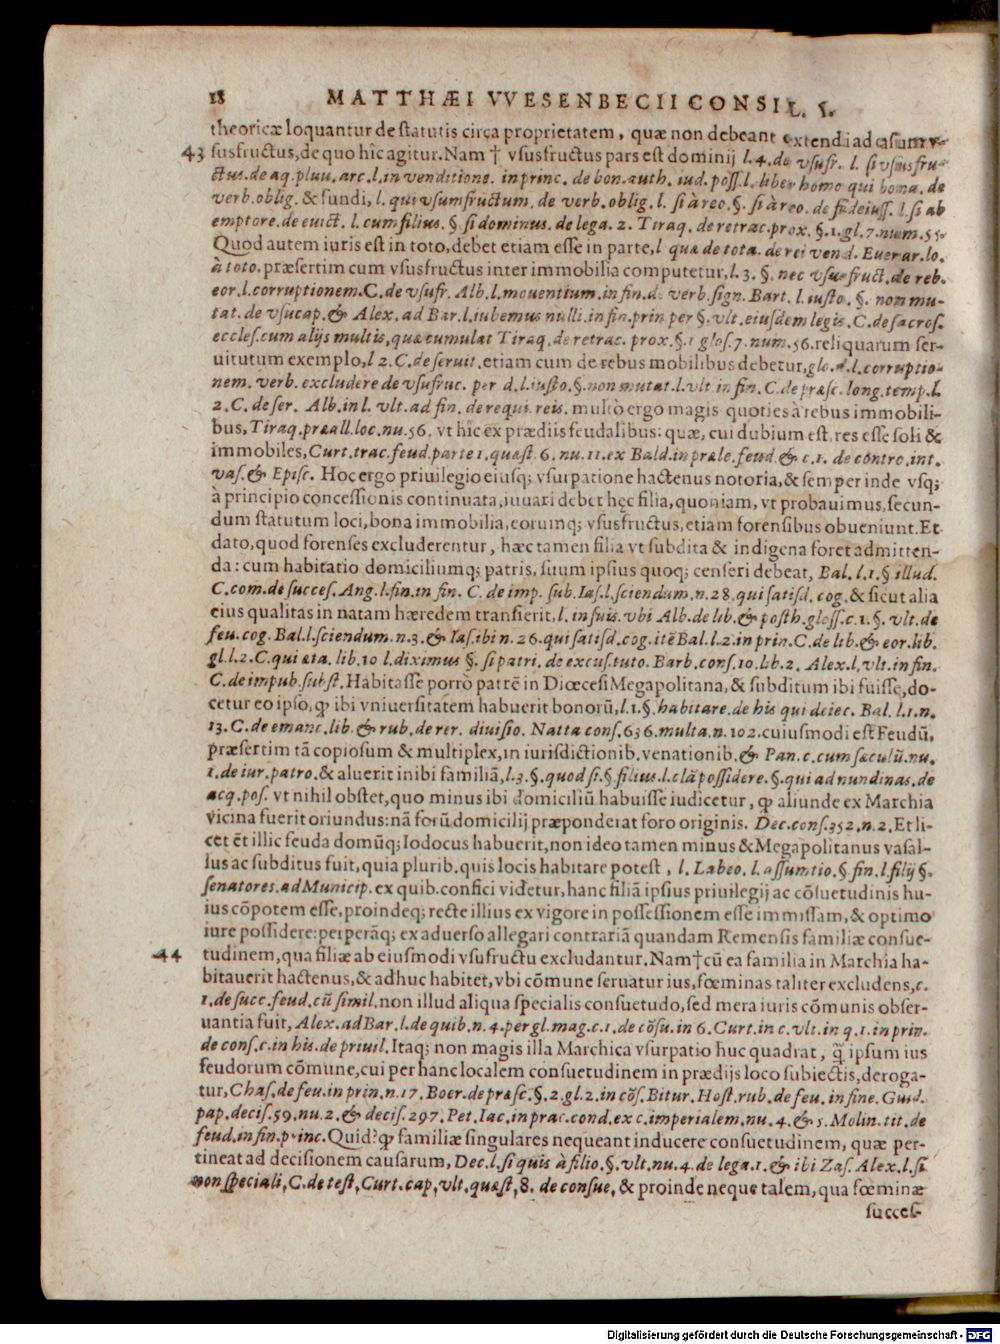 18 MATTHÆI VVESENBECII CONSIL. I.
theoricæ loquantur de statutis circa proprietatem, quæ non debeant extendi ad casum v-
43 susfructus, de quo hîc agitur. Nam † vsusfructus pars est dominij l. 4. de vsufr. l. si vsusfru-
ctus. de aq. pluu. arc. l. in venditione. in princ. de bon. auth. iud. poss. l. liber homo qui bona. de
verb. oblig. & fundi, l. qui vsumfructum. de verb. oblig. l. si à reo. §. si à reo. de fideiuss. l. si ab
emptore. de euict. l. cum filius. §. si dominus. de lega. 2. Tiraq. de retrac. prox. §. 1. gl. 7. num. 55.
Quod autem iuris est in toto, debet etiam esse in parte, l quæ de tota. de rei vend. Euerar. lo.
à toto. præsertim cum vsusfructus inter immobilia computetur, l. 3. §. nec vsusfruct. de reb.
eor. l. corruptionem. C. de vsufr. Alb. l. mouentium. in fin. de verb. sign. Bart. l. iusto. §. non mu-
tat. de vsucap. & Alex. ad Bar. l. iubemus nulli. in fin. prin per §. vlt. eiusdem legis. C. de sacros.
eccles. cum alijs multis, quæ cumulat Tiraq. de retrac. prox. §. 1 glos. 7. num. 56. reliquarum ser-
uitutum exemplo, l 2. C. de seruit. etiam cum de rebus mobilibus debetur, glo. d. l. corruptio-
nem. verb. excludere de vsufruc. per d. l. iusto, §. non mutat. l. vlt. in fin. C. de præsc. long. temp. l.
2. C. de ser. Alb. in l. vlt. ad fin. de requi. reis. multò ergo magis quoties à rebus immobili-
bus, Tiraq. præall. loc. nu. 56. vt hîc ex prædiis feudalibus: quæ, cui dubium est, res esse soli &
immobiles, Curt. trac. feud. parte 1. quæst. 6. nu. 11. ex Bald. in præle. feud. & c. 1. de contro. int.
vas. & Episc. Hoc ergo priuilegio eiusq; vsurpatione hactenus notoria, & semper inde vsq;
à principio concessionis continuata, iuuari debet hęc filia, quoniam, vt probauimus, secun-
dum statutum loci, bona immobilia, eorumq; vsusfructus, etiam forensibus obueniunt. Et
dato, quod forenses excluderentur, hæc tamen filia vt subdita & indigena foret admitten-
da: cum habitatio domiciliumq; patris, suum ipsius quoq; censeri debeat, Bal. l. 1. § illud.
C. com. de succes. Ang. l. fin. in fin. C. de imp. sub. Ias. l. sciendum. n. 28. qui satisd. cog. & sicut alia
eius qualitas in natam hæredem transierit, l. in suis. vbi Alb. de lib. & posth. gloss. c. 1. §. vlt. de
feu. cog. Bal. l. sciendum. n. 3. & Ias. ibi n. 26. qui satisd. cog. itẽ Bal. l. 2. in prin. C. de lib. & eor. lib.
gl. l. 2. C. qui æta. lib. 10 l. diximus §. si patri. de excus. tuto. Barb. cons. 10. lib. 2. Alex. l. vlt. in fin.
C. de impub. subst. Habitasse porrò patrẽ in Diœcesi Megapolitana, & subditum ibi fuisse, do-
cetur eo ipso, ꝙ ibi vniuersitatem habuerit bonorũ, l. 1. §. habitare. de his qui deiec. Bal. l. 1. n.
13. C. de emanc. lib. & rub. de rer. diuisio. Natta cons. 636. multa. n. 102. cuiusmodi est Feudũ,
præsertim tã copiosum & multiplex, in iurisdictionib. venationib. & Pan. c. cum sæculũ. nu.
1. de iur. patro. & aluerit inibi familiã, l. 3. §. quod si. §. filius. l. clã possidere. §. qui ad nundinas. de
acq. pos. vt nihil obstet, quo minus ibi domiciliũ habuisse iudicetur, ꝙ aliunde ex Marchia
vicina fuerit oriundus: nã forũ domicilij præponderat foro originis. Dec. cons. 352. n. 2. Et li-
cet ẽt illic feuda domũq; Iodocus habuerit, non ideo tamen minus & Megapolitanus vasal-
lus ac subditus fuit, quia plurib. quis locis habitare potest, l. Labeo. l. assumtio. §. fin. l filij §.
senatores. ad Municip. ex quib. confici videtur, hanc filiã ipsius priuilegij ac cõsuetudinis hu-
ius cõpotem esse, proindeq; recte illius ex vigore in possessionem esse immissam, & optimo
iure possidere: perperãq; ex aduerso allegari contrariã quandam Remensis familiæ consue-
44 tudinem, qua filiæ ab eiusmodi vsufructu excludantur. Nam † cũ ea familia in Marchia ha-
bitauerit hactenus, & adhuc habitet, vbi cõmune seruatur ius, fœminas taliter excludens, c.
1. de succ. feud. cũ simil. non illud aliqua specialis consuetudo, sed mera iuris cõmunis obser-
uantia fuit, Alex. ad Bar. l. de quib. n. 4. per gl. mag. c. 1. de cõsu. in 6. Curt. in c. vlt. in q. 1. in prin.
de cons. c. in his. de priuil. Itaq; non magis illa Marchica vsurpatio huc quadrat, q̃ ipsum ius
feudorum cõmune, cui per hanc localem consuetudinem in prædijs loco subiectis, deroga-
tur, Chas. de feu. in prin. n. 17. Boer. de præsc. §. 2. gl. 2. in cõs. Bitur. Host. rub. de feu. in fine. Guid.
pap. decis. 59. nu. 2. & decis. 297. Pet. Iac. in prac. cond. ex c. imperialem. nu. 4. & 5. Molin. tit. de
feud. in fin. princ. Quid? ꝙ familiæ singulares nequeant inducere consuetudinem, quæ per-
tineat ad decisionem causarum, Dec. l. si quis à filio. §. vlt. nu. 4. de lega. 1. & ibi Zas. Alex. l. si
non speciali, C. de test, Curt. cap, vlt. quæst, 8. de consue, & proinde neque talem, qua fœminæ
succes-
Digitalisierung gefördert durch die Deutsche Forschungsgemeinschaft - DFG